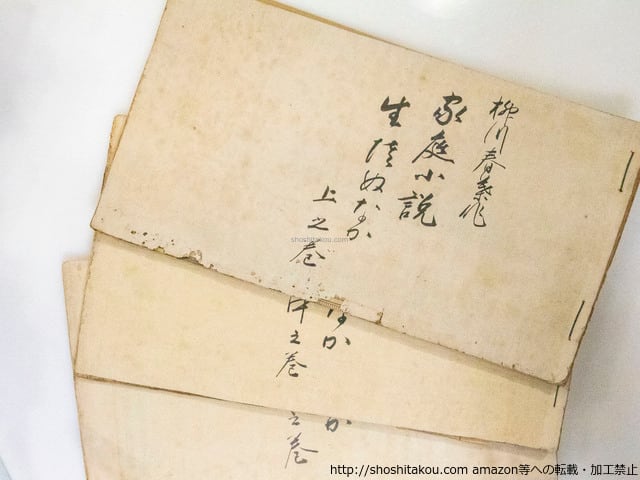 柳川春葉作
家庭小説
生さぬなか
上之巻
なか
中之巻
か
之巻
shoshitakou.com
http://shoshitakou.com amazon等への転載・加工禁止